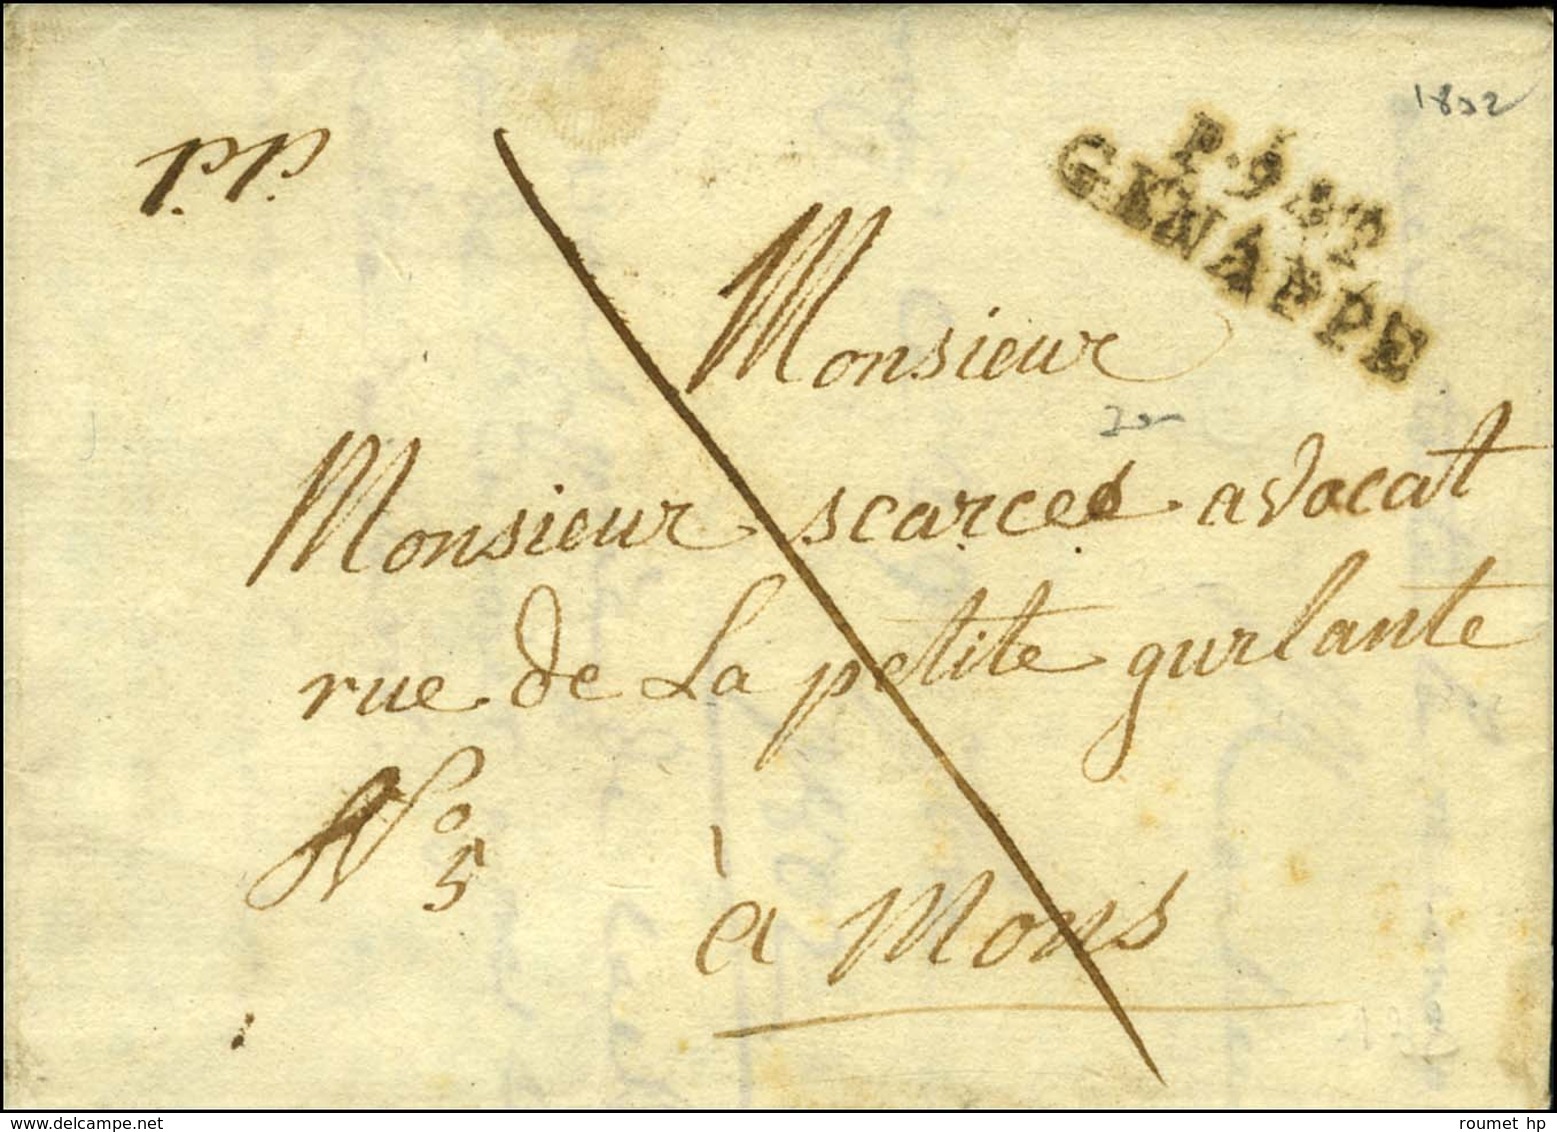 1832
p.p.
P.94.P.
GENAPPE
Monsieur
Monsieur scarcez avocat
rue de La petite gurlante
No 5
à Mons
www.delcampe.net
roumet hp